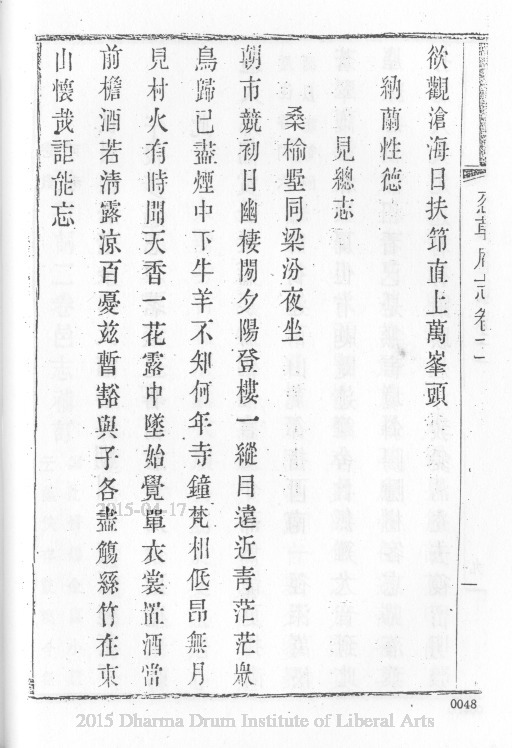 欲觀滄海日扶筇直上萬峯頭
納蘭性德
見總志
桑榆墅同梁汾夜坐
朝市競初日幽棲閒夕陽登樓一縱目遠近靑茫茫衆
鳥歸已盡煙中下牛羊不知何年寺鐘梵相低昂無月
見村火有時聞天香一花露中墜始覺單衣裳置酒當
前檐酒若淸露涼百憂玆暫豁與子各盡觴絲竹在東
山懷哉詎能忘
志卷十
一
2015-04-17
0048
2015 Dharma Drum Institute of Liberal Arts